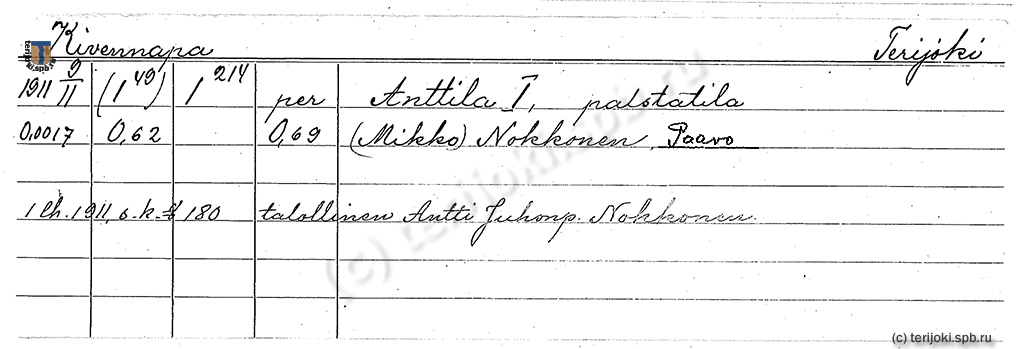 Kivennapa Terijoki
1911 9/II (1^49) 1^214 per Anttila I, palstatila
0,0017 0,62 0,69 (Mikko) Nokkonen, Paavo
1 lh. 1911, s.k. # 180 talollinen Antti Juhonp. Nokkonen.
(c) terijoki.spb.ru
(c) terijoki.spb.ru